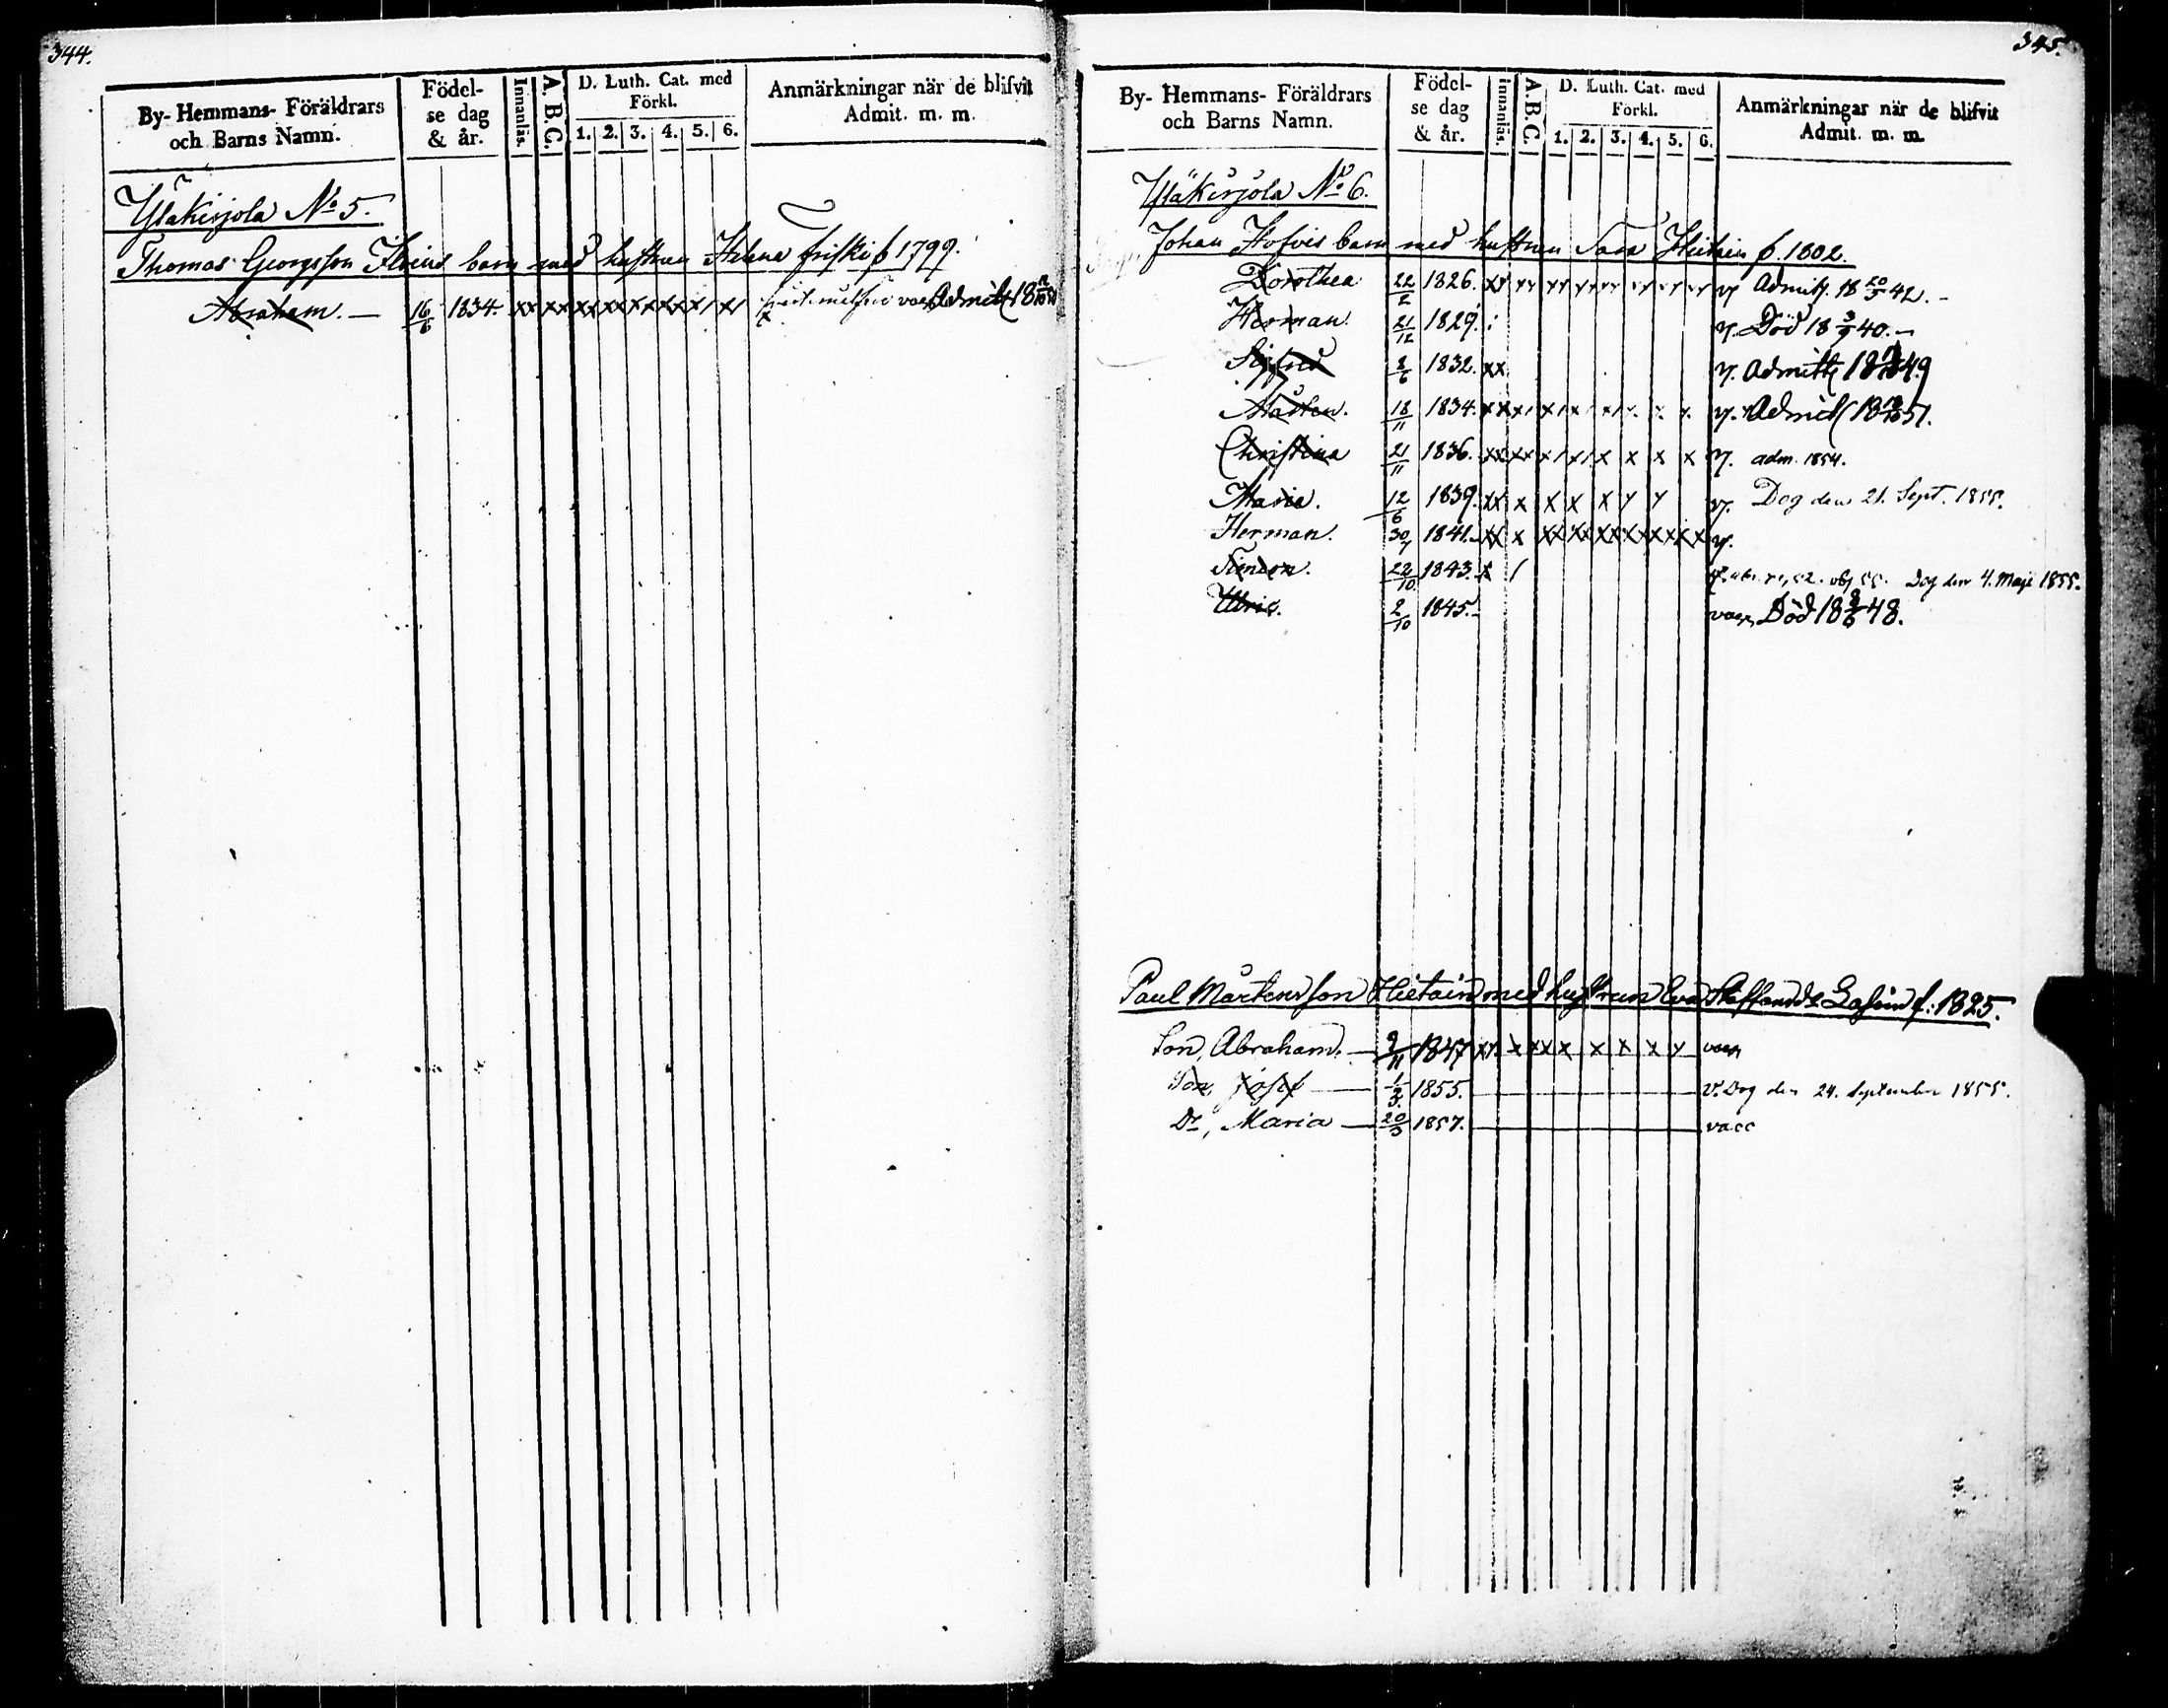 344.
By- Hemmans- Föräldrars och Barns Namn.
Födelse dag & år.
Innanläs.
A. B. C.
D. Luth. Cat. med Förkl.
1. 2. 3. 4. 5. 6.
Anmärkningar när de blifvit Admit. m. m.
Yläkirjola No 5.
Thomas Georgsson barn med hustrun Helena f 1799.
Abraham. — 16/6 1834. xx xx xx xx xx xx x/ x/ Admitt
345.
By- Hemmans- Föräldrars och Barns Namn.
Födelse dag & år.
Innanläs.
A. B. C.
D. Luth. Cat. med Förkl.
1. 2. 3. 4. 5. 6.
Anmärkningar när de blifvit Admit. m. m.
Yläkirjola No 6.
Johan barn med hustrun Sara Hietain f. 1802.
Dorothea 22/2 1826. Admitt. 18 20/5 42. -
Herman. 21/12 1829. v. Död 18 3/9 40. -
Sigfred 8/6 1832. xx v. Admitt 49
Mårten. 18/11 1834. v. Admitt 51.
Christina 21/11 1836. v. adm. 1854.
Maria. 12/6 1839. v. Dog den 21. Sept. 1855.
Herman. 30/7 1841. v.
Simeon. 22/10 1843. x / Dog den 4. Maji 1855.
Ulric. 2/10 1845. vacc. Död 18 8/6 48.
Paul Mårtensson Hietain med hustrun Eva Staffansdr f. 1825.
Son, Abraham. — 9/11 1847 vacc
Son, Josef — 1/3. 1855. — v. Dog den 24. September 1855.
Dr, Maria — 20/3 1857. — vacc